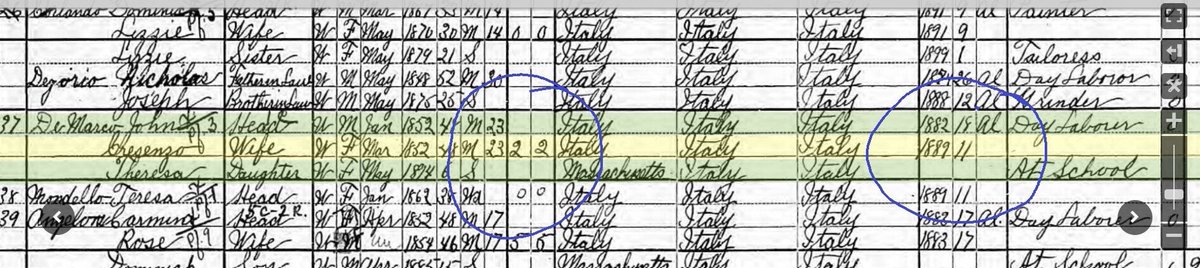 Dominic Head W M Mar 1867 33 M 14 Italy Italy Italy 1891 9 Al Painter
Lizzie Wife W F May 1870 30 M 14 0 0 Italy Italy Italy 1891 9
Lizzie Sister W F May 1879 21 S Italy Italy Italy 1899 1 Tailoress
Deiorio Nicholas Father in Law W M May 1848 52 M 30 Italy Italy Italy 26 Al Day Laborer
Joseph Brother in Law W M May 1875 25 S Italy Italy Italy 1888 12 Al Grinder
37 De Marco John Head W M Jan 1852 48 M 23 Italy Italy Italy 1882 18 Al Day Laborer
Cresenzo Wife W F Mar 1852 48 M 23 2 2 Italy Italy Italy 1889 11
Theresa Daughter W F May 1894 6 S Massachusetts Italy Italy At School
38 Mondello Teresa Head W F Jan 1862 38 Wd 0 0 Italy Italy Italy 1889 11
39 Angelone Carmine Head W M Apr 1852 48 M 17 Italy Italy Italy 17 Al Day Laborer
Rose Wife W 1854 46 M 17 Italy Italy Italy 1883 17
Son Massachusetts Italy Italy At School